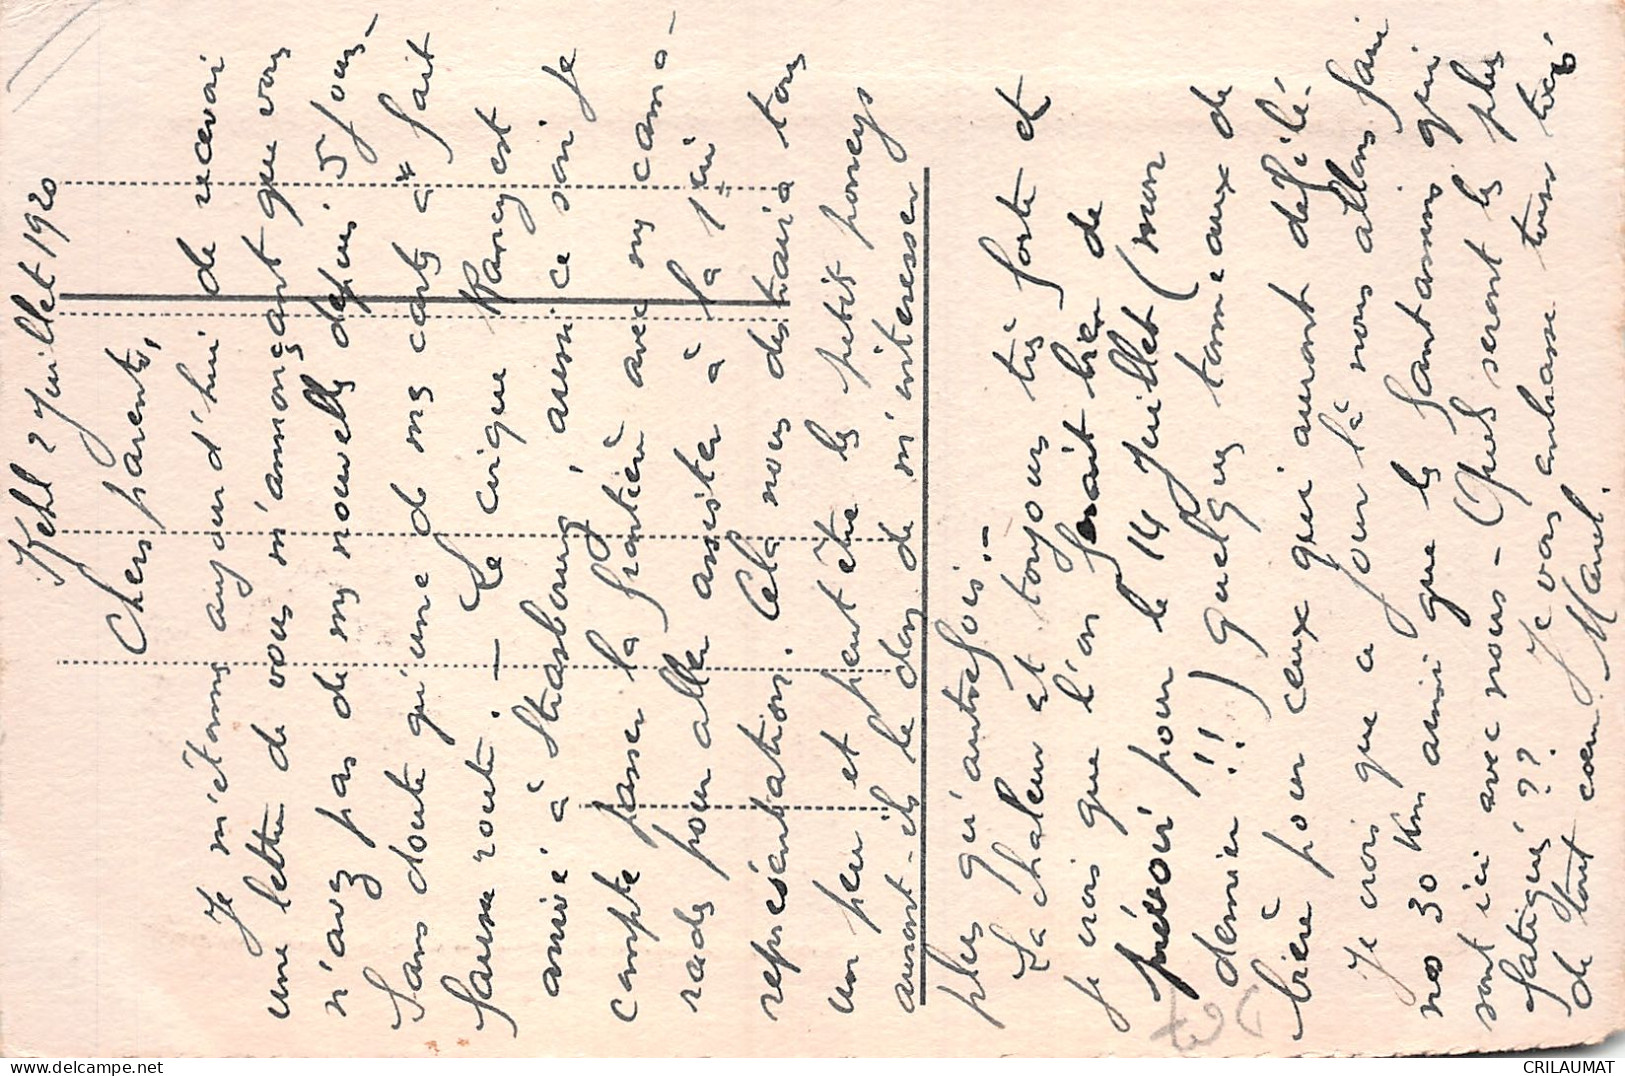 Kehl 2 Juillet 1920
Chers parents,
Je m'étonne aujourd'hui de recevoir
une lettre de vous m'annonçant que vous
n'avez pas de mes nouvelles depuis 5 jours -
Sans doute qu'une de mes cartes a fait
fausse route. - Le cirque Rancy est
arrivé à Strasbourg, aussi ce soir je
compte passer la frontière avec mes cama-
rades pour aller assister à la 1ère
représentation. Cela nous distraira tous
un peu et peut être les petits poneys
auront-ils le don de m'intéresser
plus qu'autrefois. -
La chaleur est toujours très forte et
je crois que l'on ferait bien de
prévoir pour le 14 Juillet (mon
dernier !!!) quelques tonneaux de
bière pour ceux qui auront défilé.
Je crois que ce jour là nous allons faire
nos 30 Km ainsi que les fantassins qui
sont ici avec nous - Quels seront les plus
fatigués ?? Je vous embrasse tous trois
de tout coeur. Marcel.
CRILAUMAT